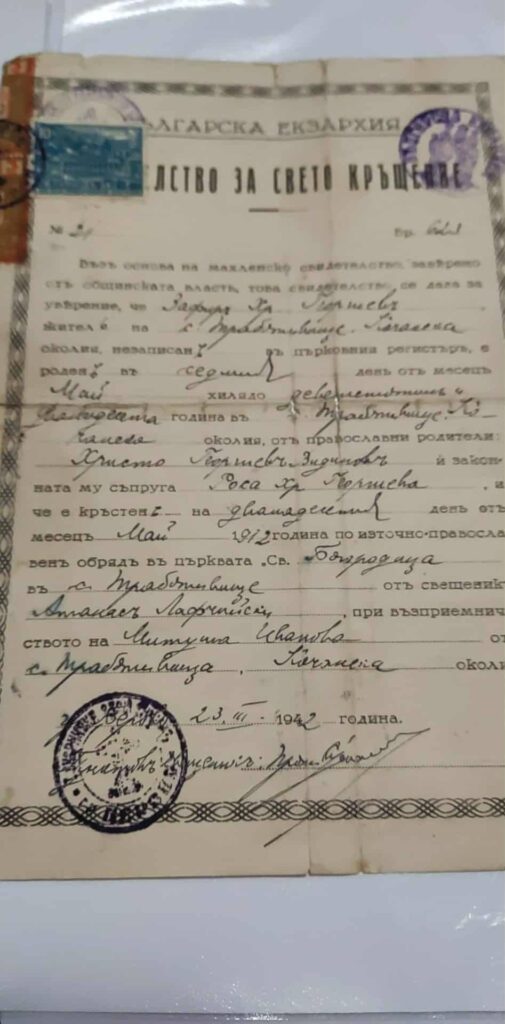 БЪЛГАРСКА ЕКЗАРХИЯ
ЛСТВО ЗА СВЕТО КРЪЩЕНИЕ
№
Въз основа на махленско свидетелство, заверено
отъ общинската власть, това свидетелство се дава за
уверение, че Зафиръ Хр Георгиевъ
жител на с. Трабатвище Кочанска
околия, незаписанъ въ църковния регистъръ, е
роденъ въ седмий день отъ месецъ
Май хилядо деветстотинъ и
дванадесета година въ с. Трабатвище Ко-
чанска околия, отъ православни родители:
Христо Георгиевъ и закон-
ната му съпруга Роса Хр Георгиева, и
че е кръстенъ на дванадесетий день отъ
месецъ Май 1912 година по източно-правосла
венъ обрядъ въ църквата „Св. Богородица
въ с. Трабатвище отъ свещеник
Атанасъ, при възприемнич
ството на Митуша Иванова от
с. Трабатвища, Кочанска околи
23. III. 1942 година.